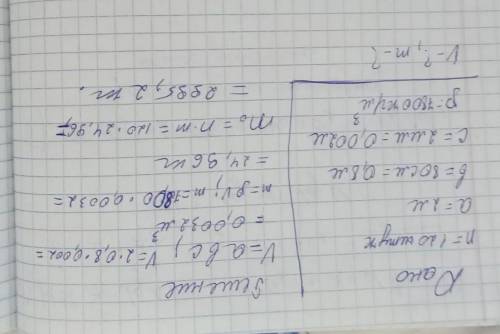 Дано
n=120 штук
a=2м
b=80см=0,8м
c=2мм=0,002м
ρ=7800кг/м³
V-?, m-?
Решение
V=abc; V=2·0,8·0,002=
=0,0032м³
m=ρV; m=7800·0,0032=
=24,96кг
m₀=n·m=120·24,96=
=2995,2кг.